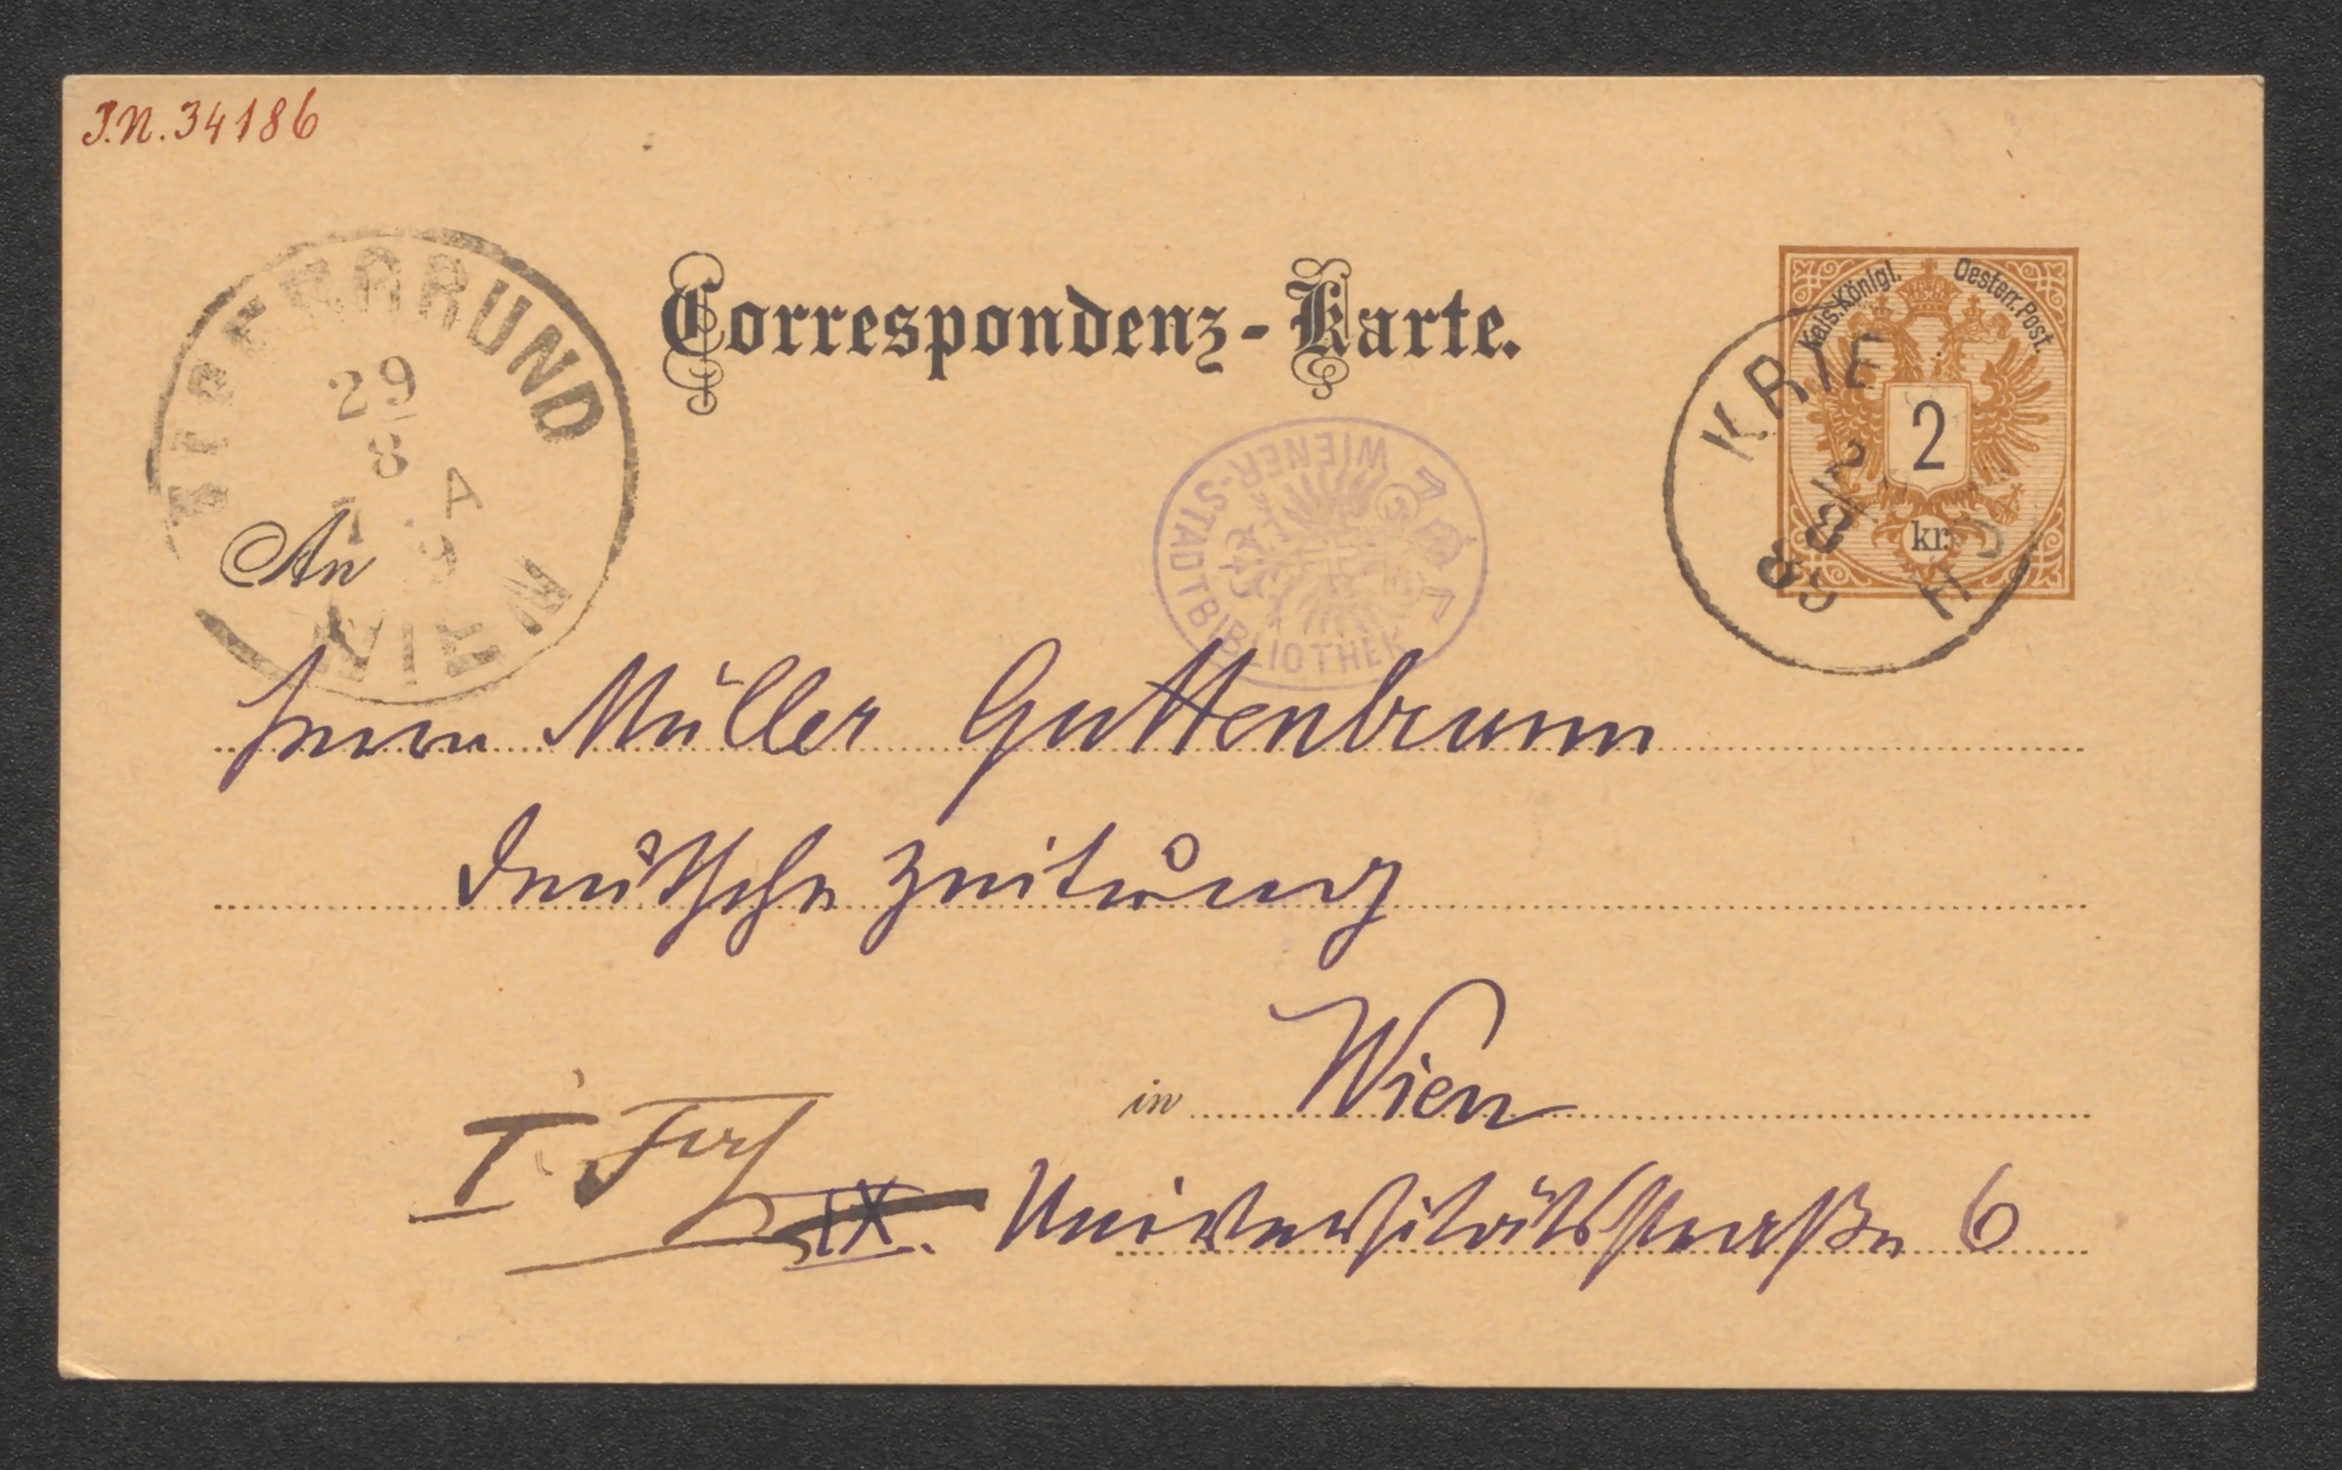 J.N. 34186
Correspondenz-Karte.
Kais. Königl. Oesterr. Post.
2
kr.
29
8
WIEN
WIENER-STADTBIBLIOTHEK
An
Herrn Müller Guttenbrunn
Deutsche Zeitung
in Wien
I.
IX. Universitätsstraße 6